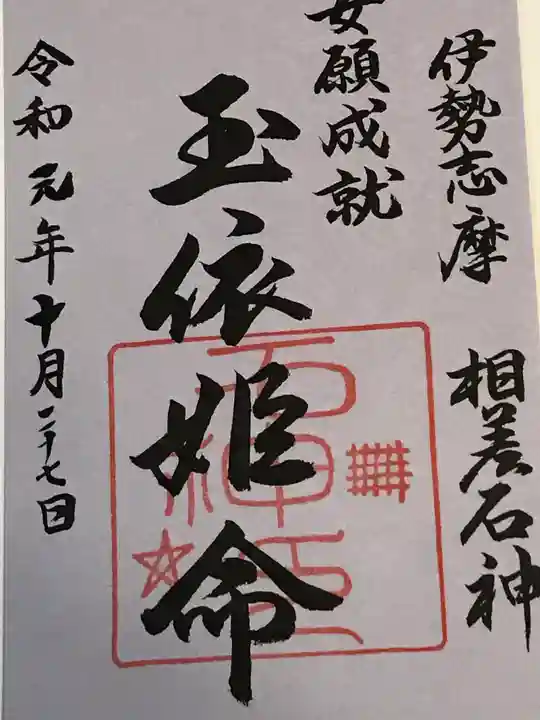 伊勢志摩 相差石神
女願成就
玉依姫命
令和元年十月二十七日
石神